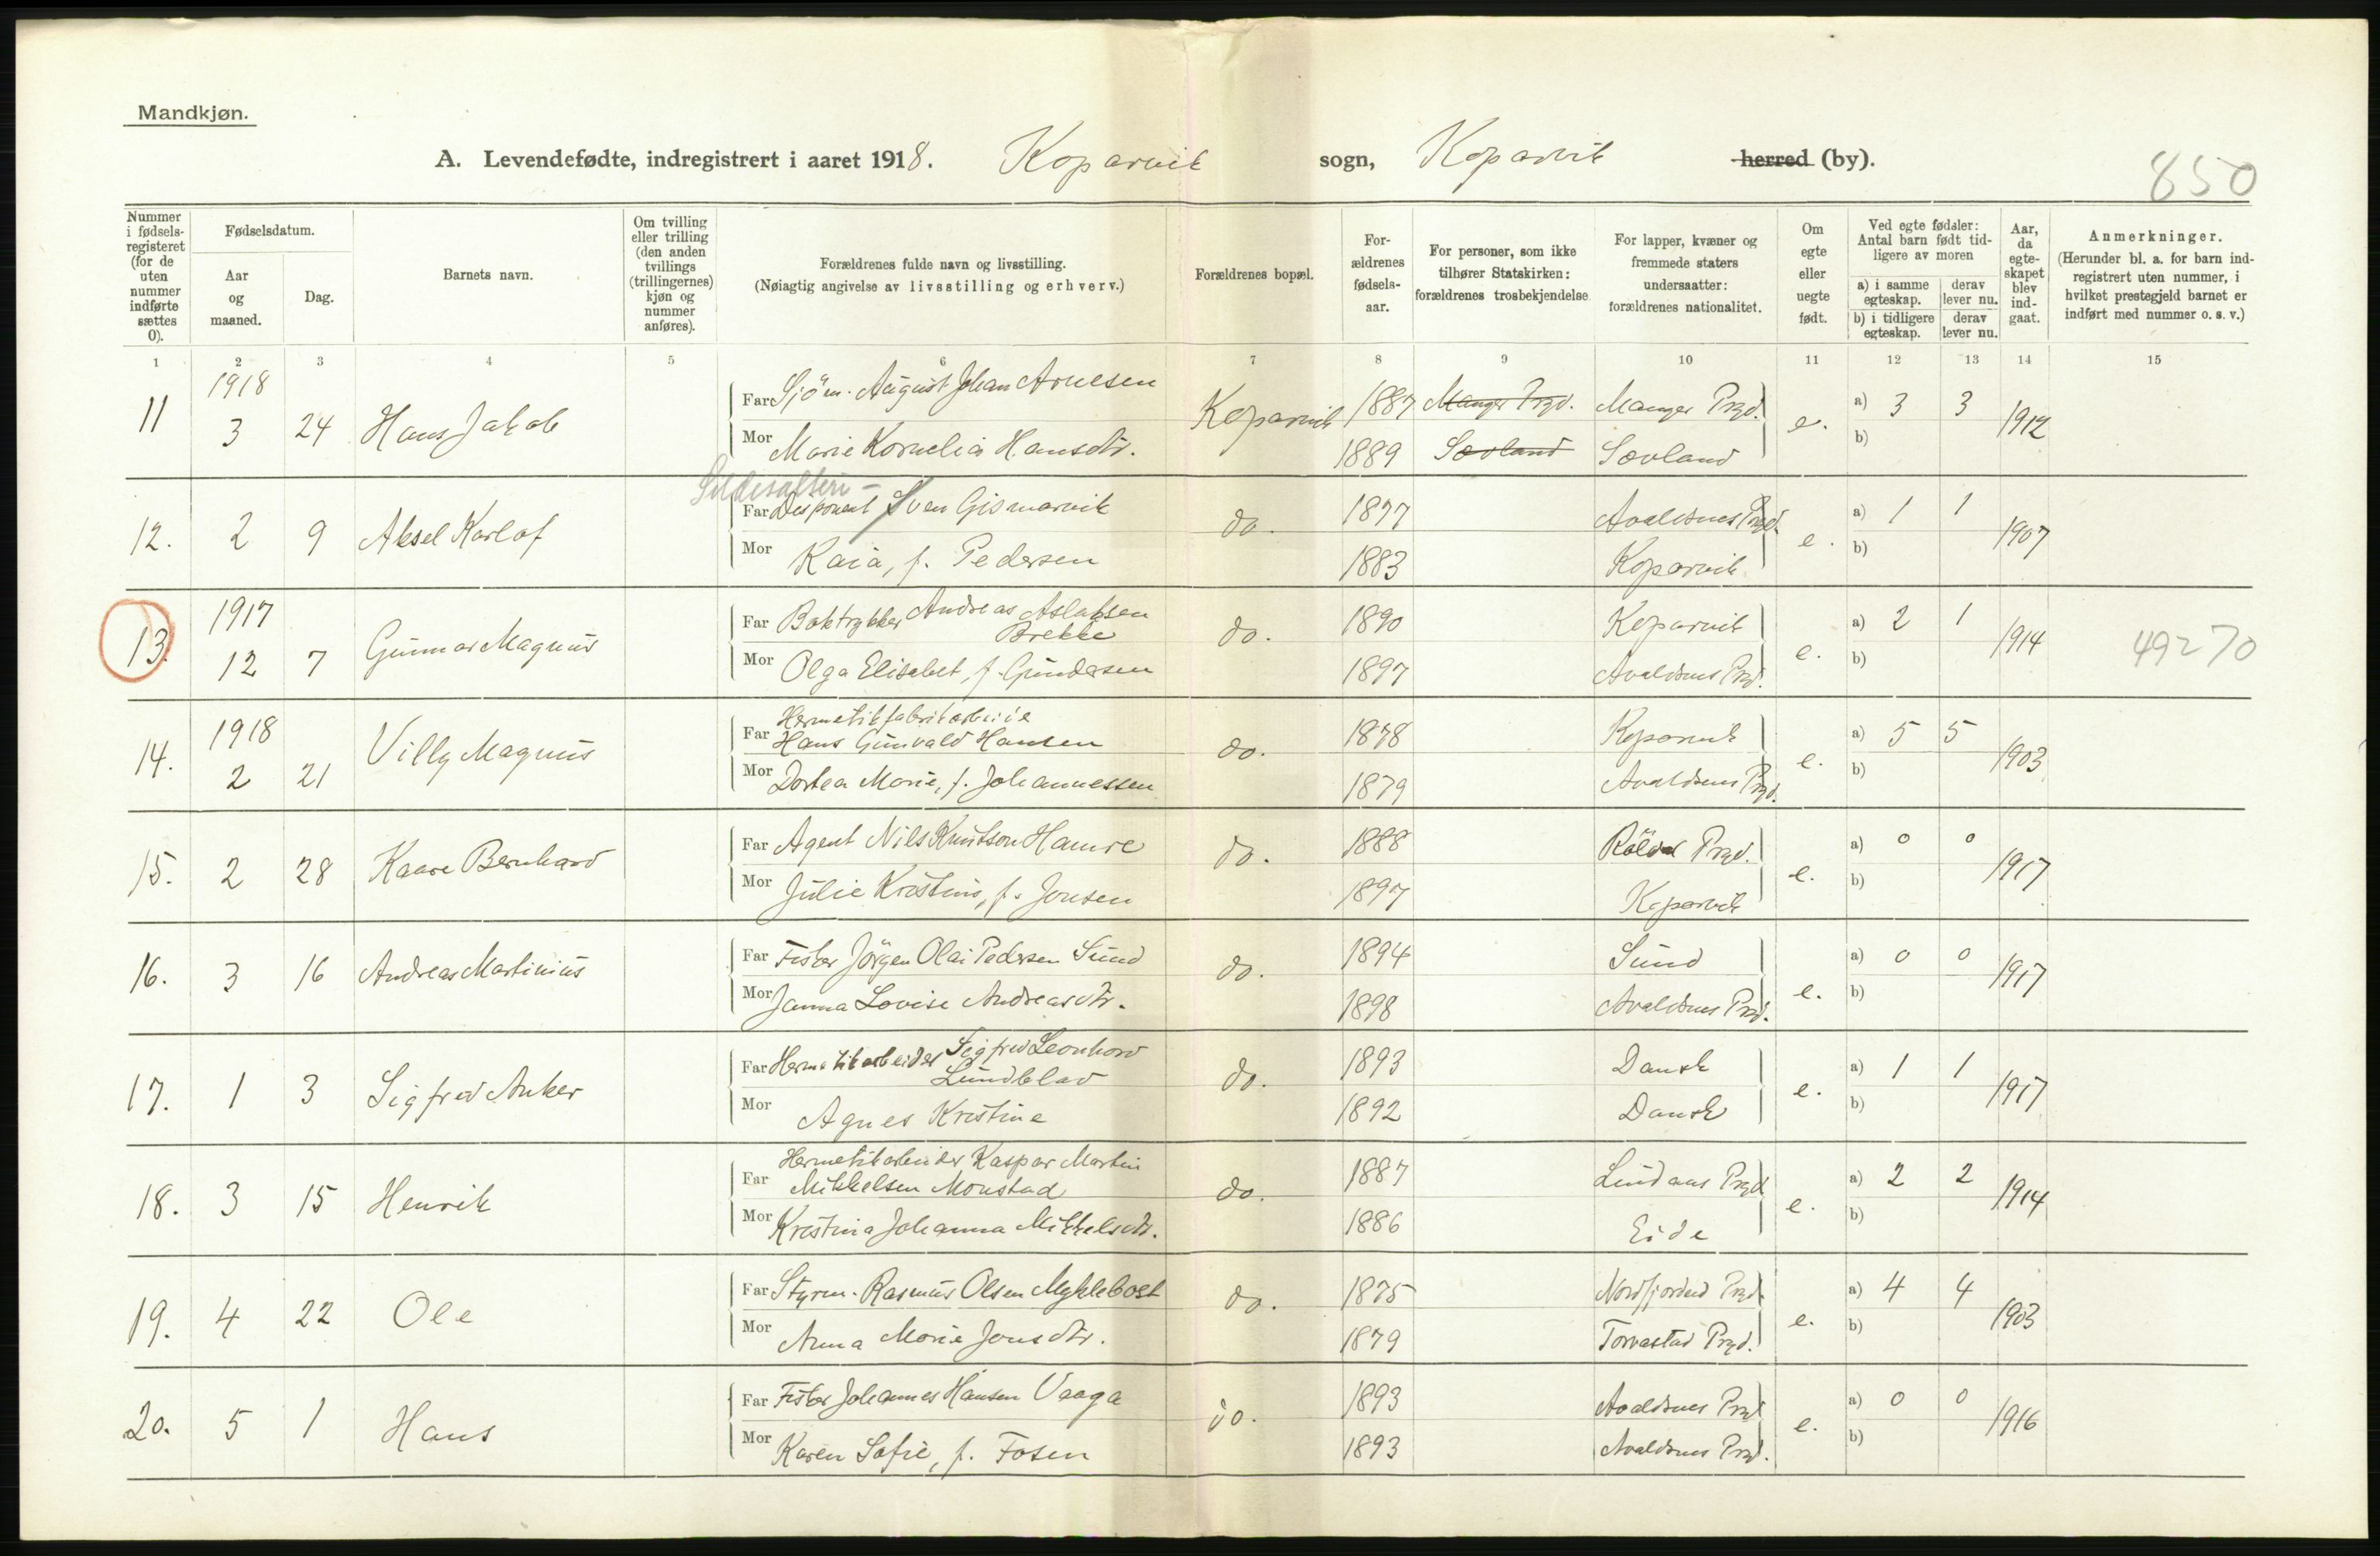 Mandkjøn.
A. Levendefødte, indregistrert i aaret 1918. Koparvik sogn, Koparvik herred (by).
850
Nummer i fødsels-registeret (for de uten nummer indførte sættes 0).
Fødselsdatum.
Aar og maaned.
Dag.
Barnets navn.
Om tvilling eller trilling (den anden tvillings (trillingernes) kjøn og nummer anføres).
Forældrenes fulde navn og livsstilling.
(Nøiagtig angivelse av livsstilling og erhverv.)
Forældrenes bopæl.
For-ældrenes fødsels-aar.
For personer, som ikke tilhører Statskirken: forældrenes trosbekjendelse.
For lapper, kvæner og fremmede staters undersaatter: forældrenes nationalitet.
Om egte eller uegte født.
Ved egte fødsler: Antal barn født tid-ligere av moren
a) i samme egteskap.
derav lever nu.
b) i tidligere egteskap.
derav lever nu.
Aar, da egte-skapet blev ind-gaat.
Anmerkninger.
(Herunder bl. a. for barn ind-registrert uten nummer, i hvilket prestegjeld barnet er indført med nummer o. s. v.)
1 2 3 4 5 6 7 8 9 10 11 12 13 14 15
1918
11 3 24 Hans Jakob Far Sjöm. August Johan Arnesen Koparvik 1887 Manger Prgd. Manger Prgd. e. a) 3 3 1912
Mor Marie Kornelia Hansdtr. 1889 Sovland Sovland b)
Sildesalteri-
12. 2 9 Aksel Karlof Far Disponent Sven Gismarvik do. 1877 Avaldsnes Prgd. e. a) 1 1 1907
Mor Kaia, f. Pedersen 1883 Koparvik b)
1917
13. 12 7 Gunnar Magnus Far Boktrykker Andreas Aslaksen Brekke do. 1890 Koparvik e. a) 2 1 1914 49270
Mor Olga Elisabet, f. Gundersen 1897 Avaldsnes Prgd. b)
1918
14. 2 21 Villy Magnus Far Hermetikfabrikarbeide
Hans Gunvald Hansen do. 1878 Koparvik e. a) 5 5 1903
Mor Dortea Marie, f. Johannessen 1879 Avaldsnes Prgd. b)
15. 2 28 Kaare Bernhard Far Agent Nils Knutson Hamre do. 1888 Röldal Prgd. e. a) 0 0 1917
Mor Julie Kristine, f. Jensen 1897 Koparvik b)
16. 3 16 Andreas Martinius Far Fisker Jörgen Olai Pedersen Sund do. 1894 Sund e. a) 0 0 1917
Mor Janna Lovise Andreasdtr. 1898 Avaldsnes Prgd. b)
17. 1 3 Sigfred Anker Far Hermetikarbeider Sigfred Leonhard Lundblad do. 1893 Dansk e. a) 1 1 1917
Mor Agnes Kristine 1892 Dansk b)
18. 3 15 Henrik Far Hermetikarbeider Kaspar Martin
Mikkelsen Monstad do. 1887 Lindaas Prgd. e. a) 2 2 1914
Mor Kristina Johanna Mikkelsdtr. 1886 Eide b)
19. 4 22 Ole Far Styrm. Rasmus Olsen Myklebost do. 1875 Nordfjordeid Prgd. e. a) 4 4 1903
Mor Anna Marie Jonsdtr. 1879 Torvastad Prgd. b)
20. 5 1 Hans Far Fisker Johannes Hansen Vaaga do. 1893 Avaldsnes Prgd. e. a) 0 0 1916
Mor Karen Sofie, f. Fosen 1893 Avaldsnes Prgd. b)